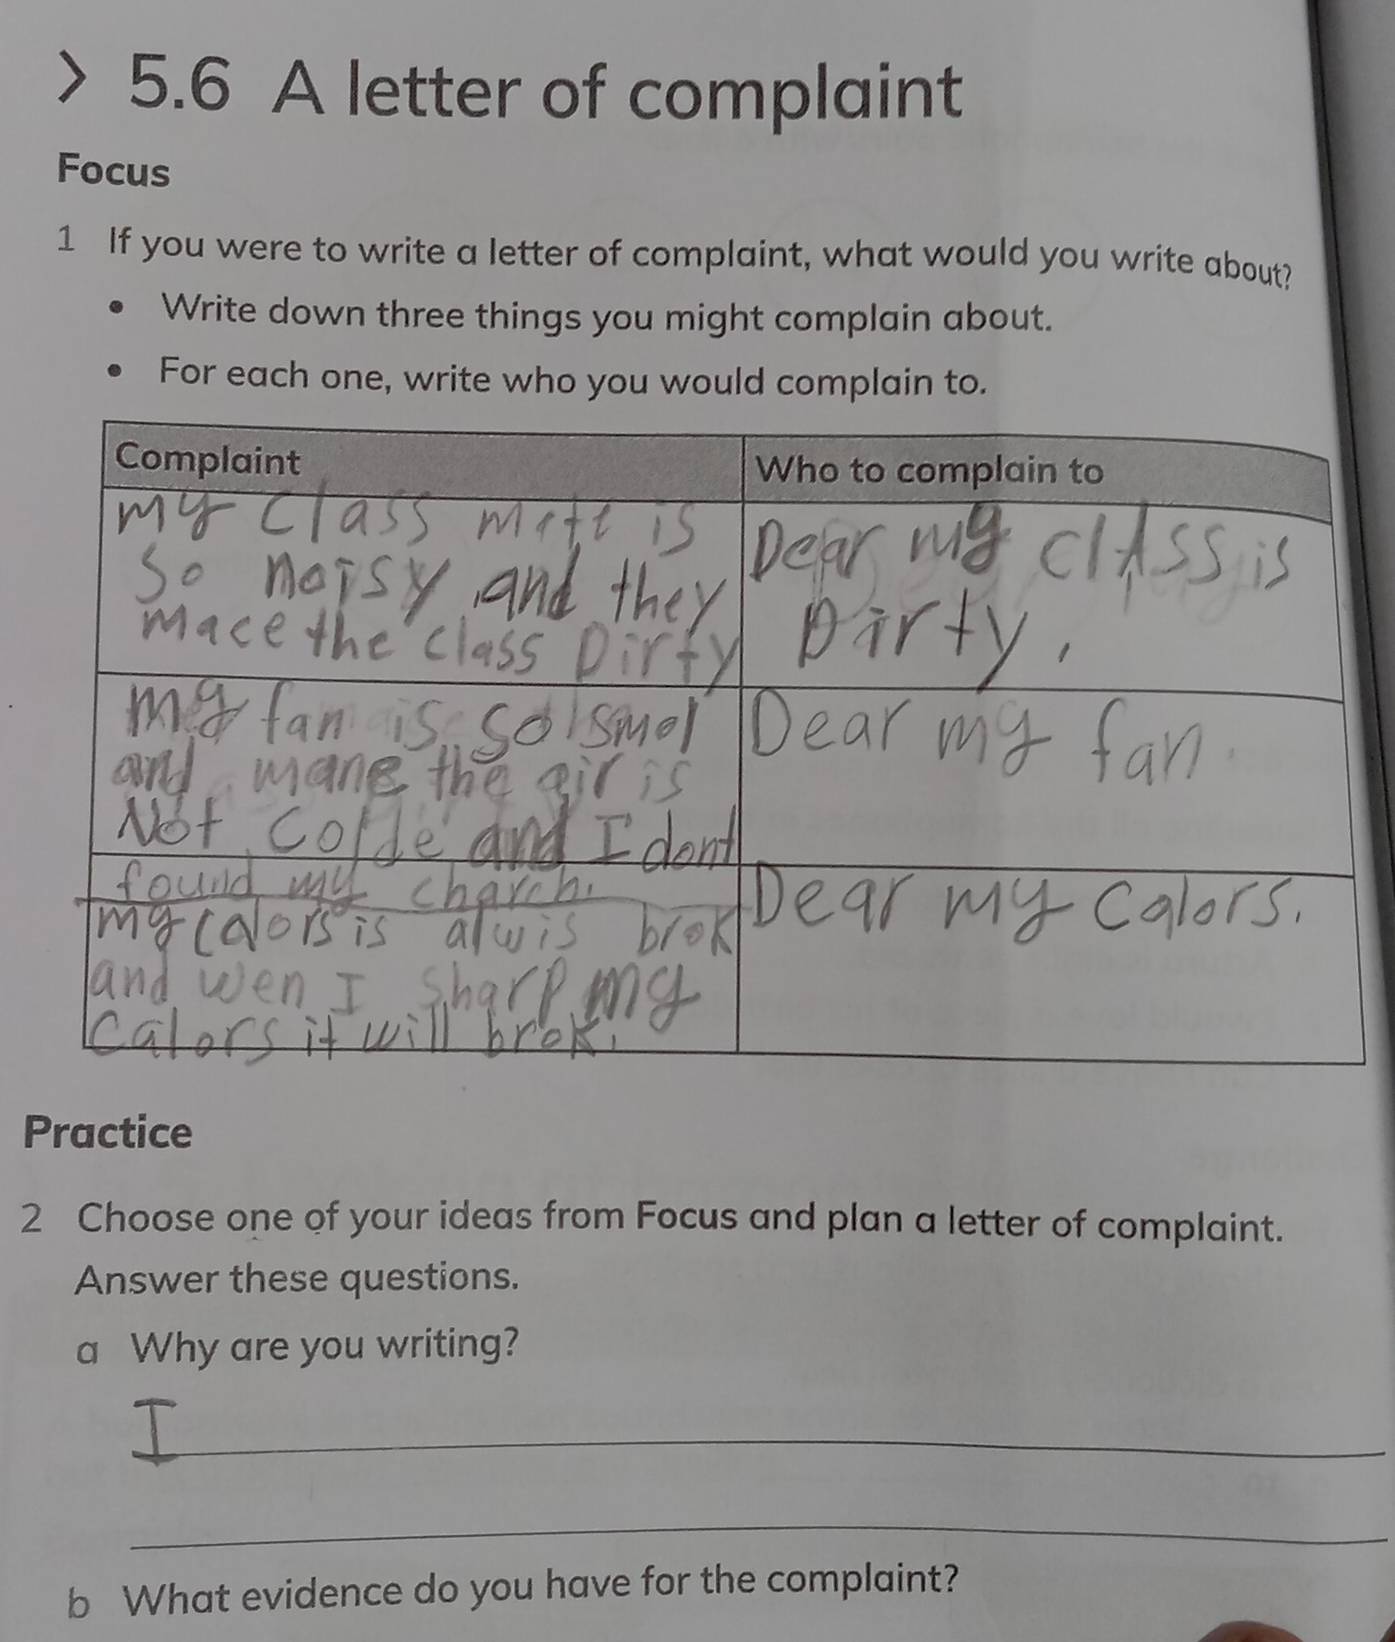 > 5.6 A letter of complaint
Focus
1 If you were to write a letter of complaint, what would you write about?
• Write down three things you might complain about.
• For each one, write who you would complain to.
Complaint
Who to complain to
my class mate is
so noisy and they
mace the class Dirty
Dear my class is
Dirty.
my fan is so smol
and mane the air is
Not colde and I dont
found my charch.
Dear my fan.
my calors is alwis brok
and wen I sharp my
calors it will brok.
Dear my calors.
Practice
2 Choose one of your ideas from Focus and plan a letter of complaint.
Answer these questions.
a Why are you writing?
I
b What evidence do you have for the complaint?